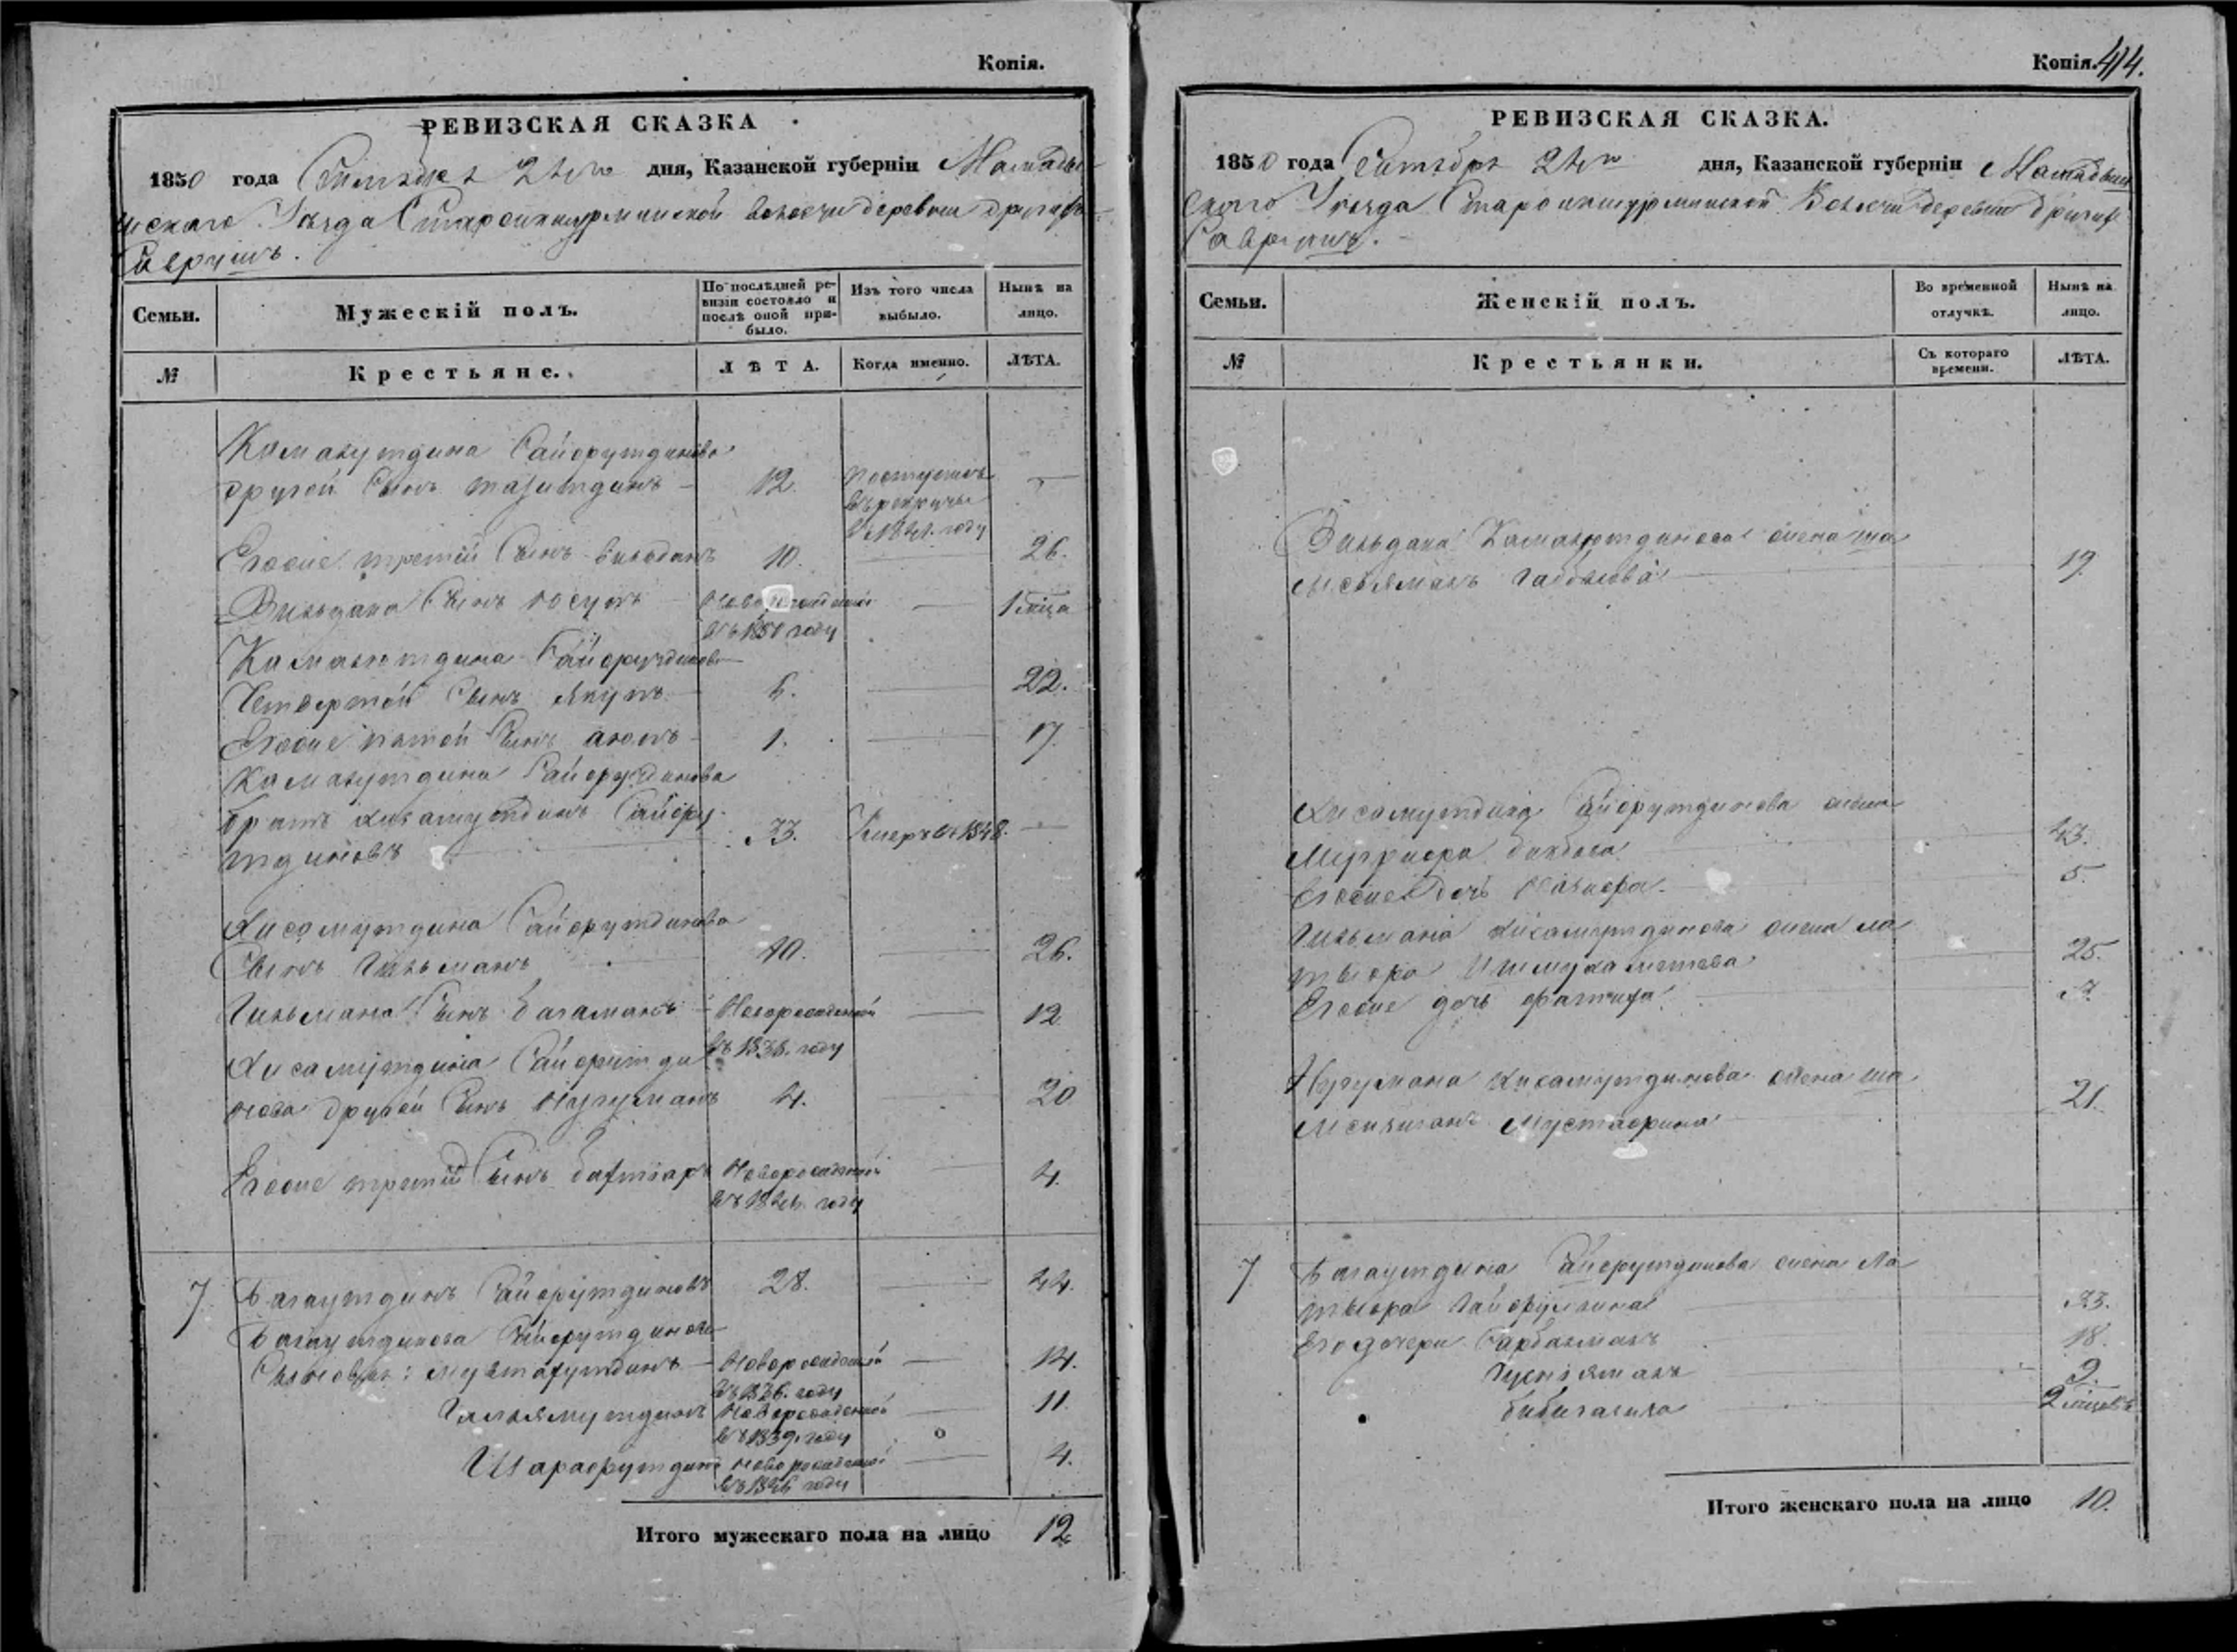 Копія.
РЕВИЗСКАЯ СКАЗКА
1850 года Сентября 24го дня, Казанской губерніи Мамады-
шскаго Уѣзда Староикшурминской волости деревни другихъ
Саврушъ.
Семьи.
Мужескій полъ.
По послѣдней ре-
визіи состояло и
послѣ оной при-
было.
Изъ того числа
выбыло.
Нынѣ на
лицо.
№
Крестьяне.
ЛѢТА.
Когда именно.
ЛѢТА.
Камалутдина Сайфутдинова
другой Сынъ тазитдинъ 12. поступилъ
въ рекруты
въ 1841. году
Егоже третій Сынъ Вильданъ 10. 26.
Вильдана Сынъ Юсупъ Новорожденной 1 мѣсца
въ 1850 году
Камалютдина Сайфутдинова
Четвертой Сынъ Якупъ 6. 22.
Егоже пятой Сынъ аюпъ 1. 17.
Камалутдина Сайфутдинова
братъ Хисамутдинъ Сайфу-
тдиновъ 33. Умеръ въ 1848.
Хисамутдина Сайфутдинова
Сынъ Гильманъ 10. 26.
Гильмана Сынъ багаманъ Новорожденной 12
въ 1838. году
Хисамутдина Сайфутди
нова другой Сынъ Нугуманъ 4. 20
Егоже третій Сынъ бахтіаръ Новорожденной 4.
въ 1846. году
7 Багаутдинъ Сайфутдиновъ 28. 44.
Багаутдинова Сайфутдинова
Сыновья: мухтазутдинъ Новорожденной 14.
въ 1836. году
Гилязмутдинъ Новорожденной 11.
въ 1839. году
Шарафутдинъ Новорожденной 4.
въ 1846 году
Итого мужескаго пола на лицо 12.
Копія. 414.
РЕВИЗСКАЯ СКАЗКА.
1850 года Сентября 24го дня, Казанской губерніи Мамадыш
скаго Уѣзда Староикшурминской Волости деревни другихъ
Саврушъ.
Семьи.
Женскій полъ.
Во временной
отлучкѣ.
Нынѣ на
лицо.
№
Крестьянки.
Съ котораго
времени.
ЛѢТА.
Вильдана Камалютдинова жена ша
мсыямалъ Габбясова 19.
Хисамутдина Сайфутдинова жена
Мугриефа бикбова 43.
Егоже дочь 5.
Гильмана Хисамутдинова жена ла
тыфа Ишмухаметева 25.
Егоже дочь фатиха 3.
Нугумана Хисамутдинова жена ша
мсижиганъ Мустафина 21.
7 Багаутдина Сайфутдинова жена ла
тыфа Гайфуллина 33.
Его дочери Сарбизмалъ 18.
Хуснізямалъ 9.
бибигалила 2 мѣсцовъ
Итого женскаго пола на лицо 10.